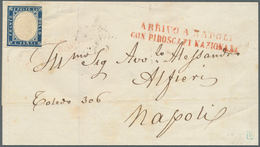 ARRIVO A NAPOLI
CON PIROSCAFI NAZIONALI
Sig Avo Alessandro
Alfieri
Toledo 306
Napoli